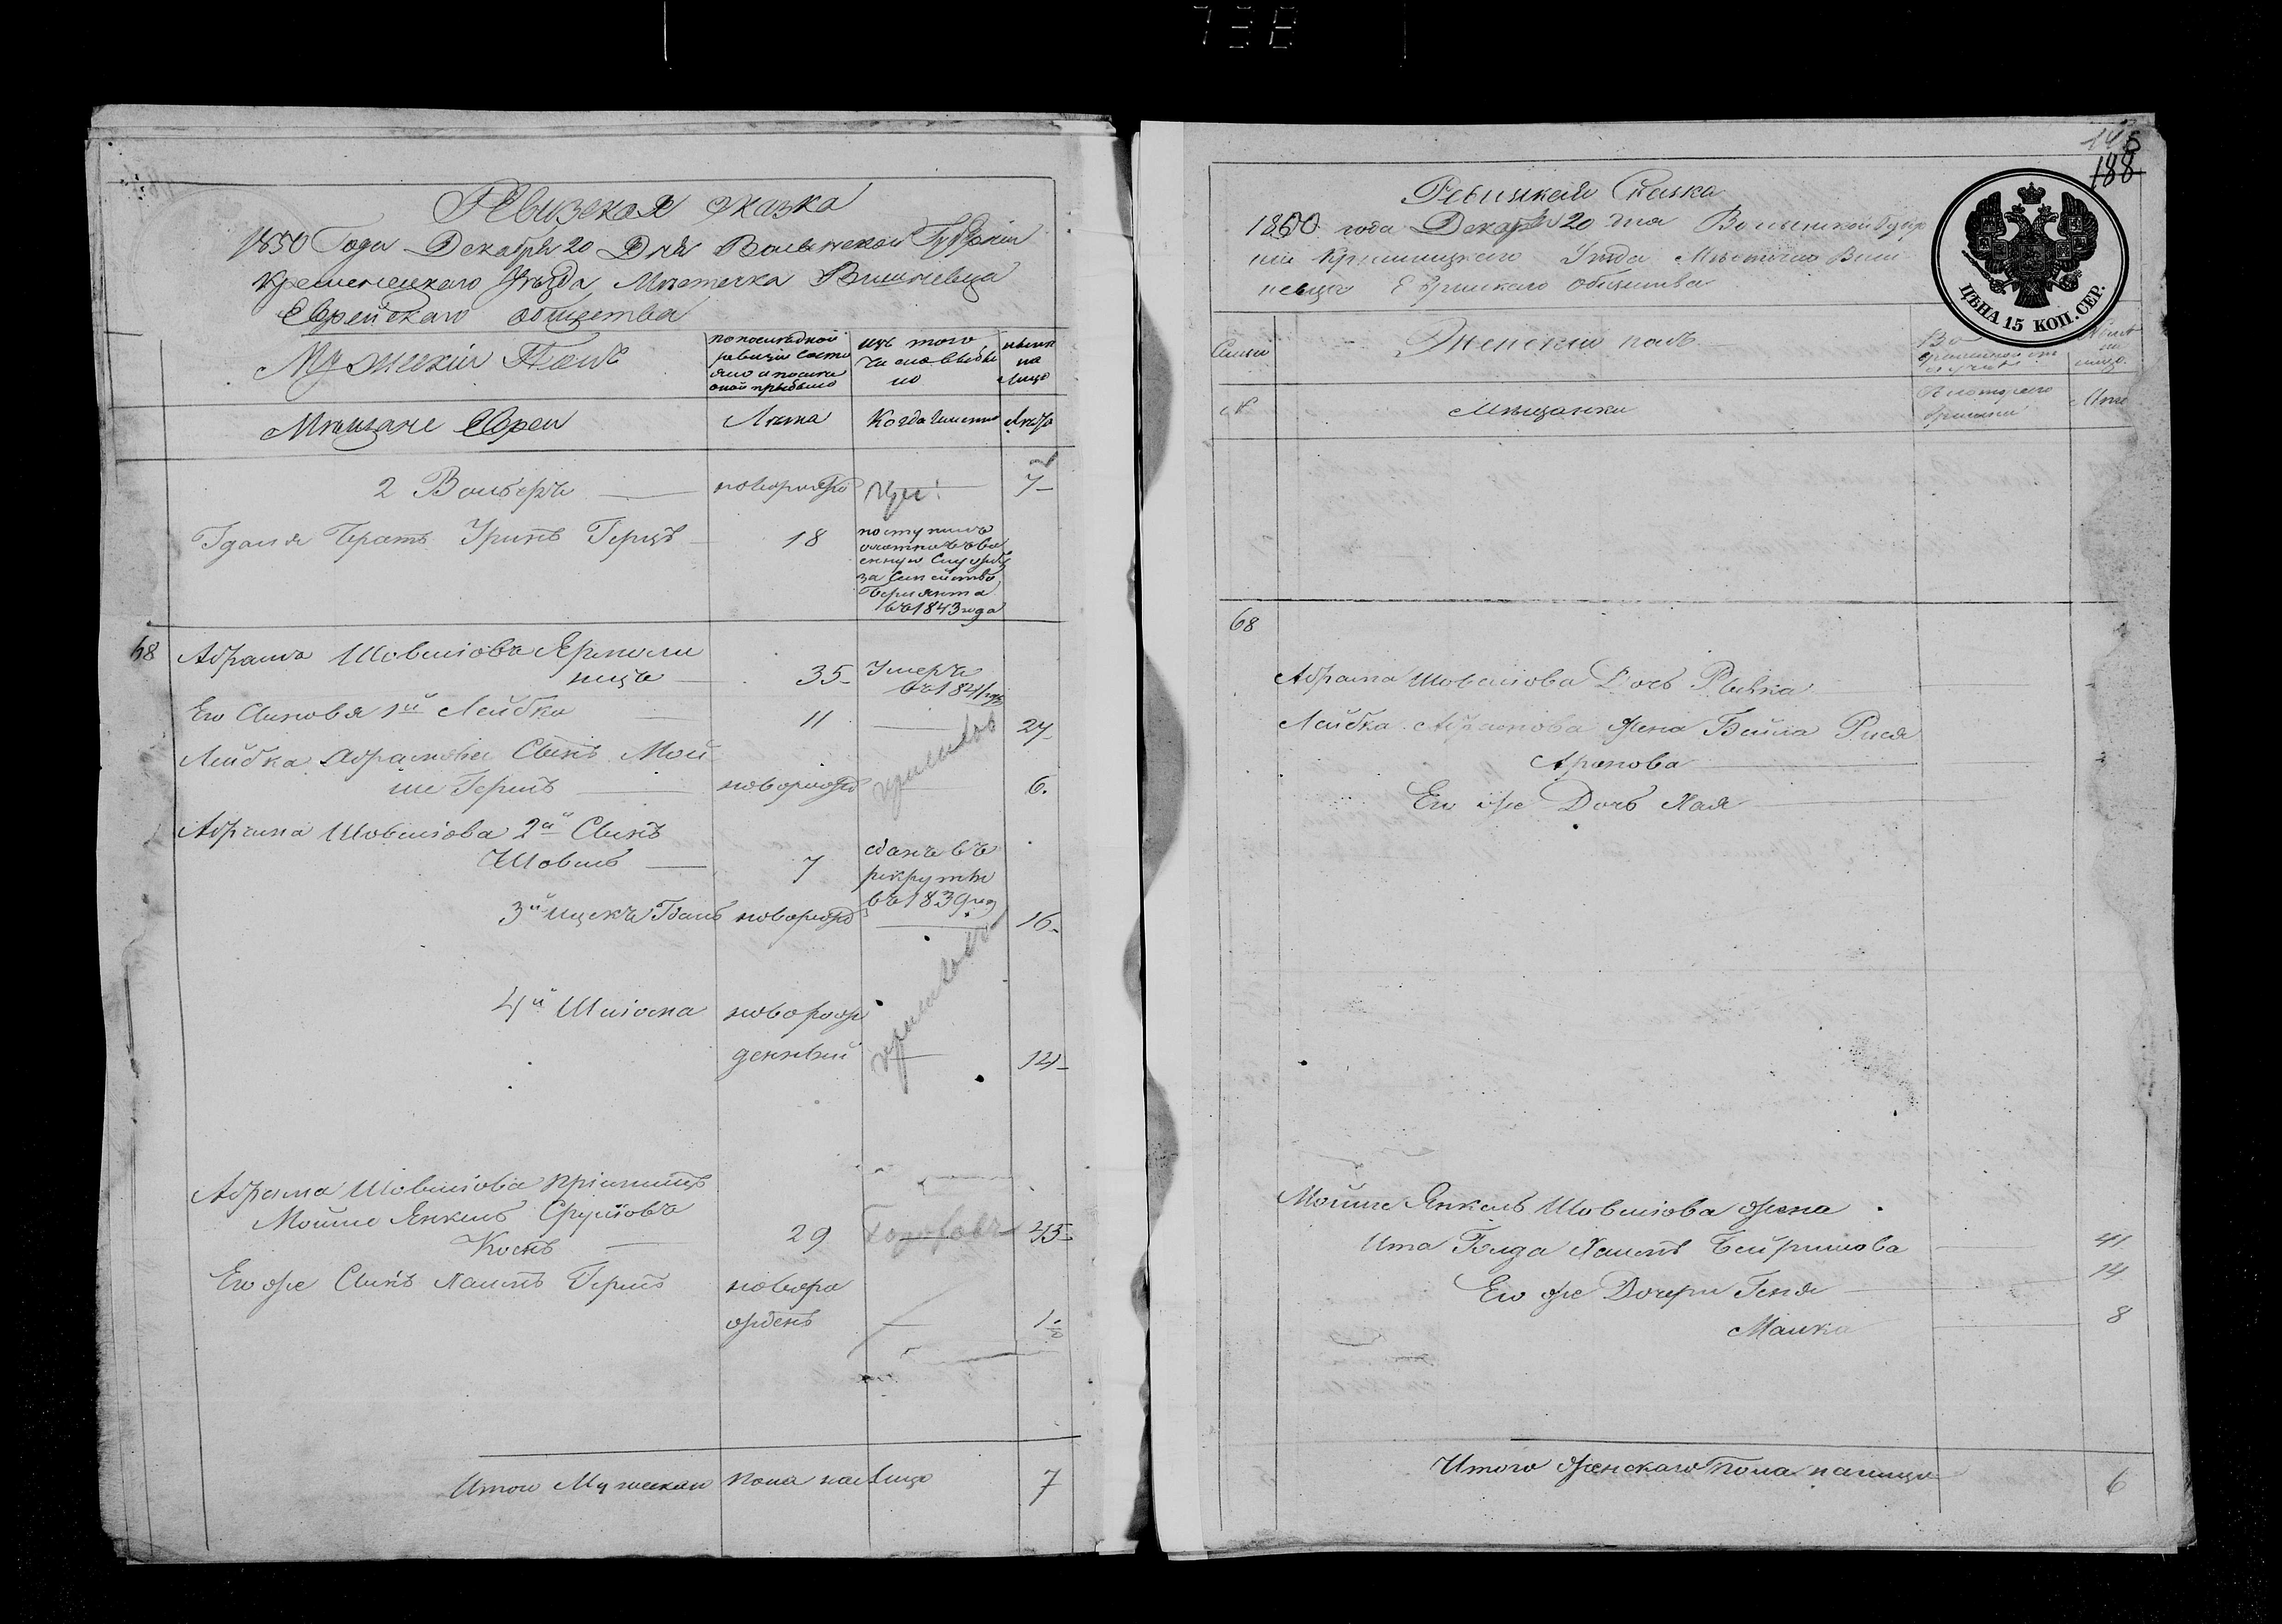 Ревизская сказка
1850 Года Декабря 20 Дня Волынской Губернии
Кременецкаго Уезда, Местечка Вишневца
Еврейскаго общества
Мужескій Полъ
по последной ревизіи состояло и после оной прибыло
изъ того числа выбыло
ныне на лицо
Мещане Евреи
Лета
Когда именно
Лета
2 Вольферъ
новорожд
7
Гдаля братъ Уринъ Герцъ
18
поступилъ
охотно въ во
енную службу
за семейство
въ 1843 года
68
Абрамъ Шовшіовъ Ярмоли
нецъ
35
Умеръ
въ 1841 год
Его Сыновья 1й Лейбко
11
27
Лейбка Абрамова Сынъ Мой
ше Гершъ
новорожд
6.
Абрама Шовшіова 2й Сынъ
Шовшъ
7
сданъ въ
рекруты
въ 1839 год
3й
новорожд
16
4й Шліома
новорож
денный
14
Абрама Шовшіова пріемышъ
Мойше Янкель Сруліовъ
29
45
Его же Сынъ Хаимъ Гершъ
новоро
жденъ
1
Итого Мужескаго пола на лицо
7
145
188
ЦѢНА 15 КОП. СЕР.
Ревизкая Сказка
1850 года Декабря 20 дня Волынской Губер
ніи Кременецкаго Уезда Местечка Виш
невца Еврейскаго общества
Семьи
Женскій полъ
№
Мещанки
68
Абрама Шовшіова Дочь Рывка
Лейбка Абрамова жена Бейла Рися
Аронова
Его же Дочь Хая
Мойше Янкель Шовшіова жена
Ита Хаимъ
41
Его же Дочери Геня
14
Малка
8
Итого женскаго пола на лицо
6